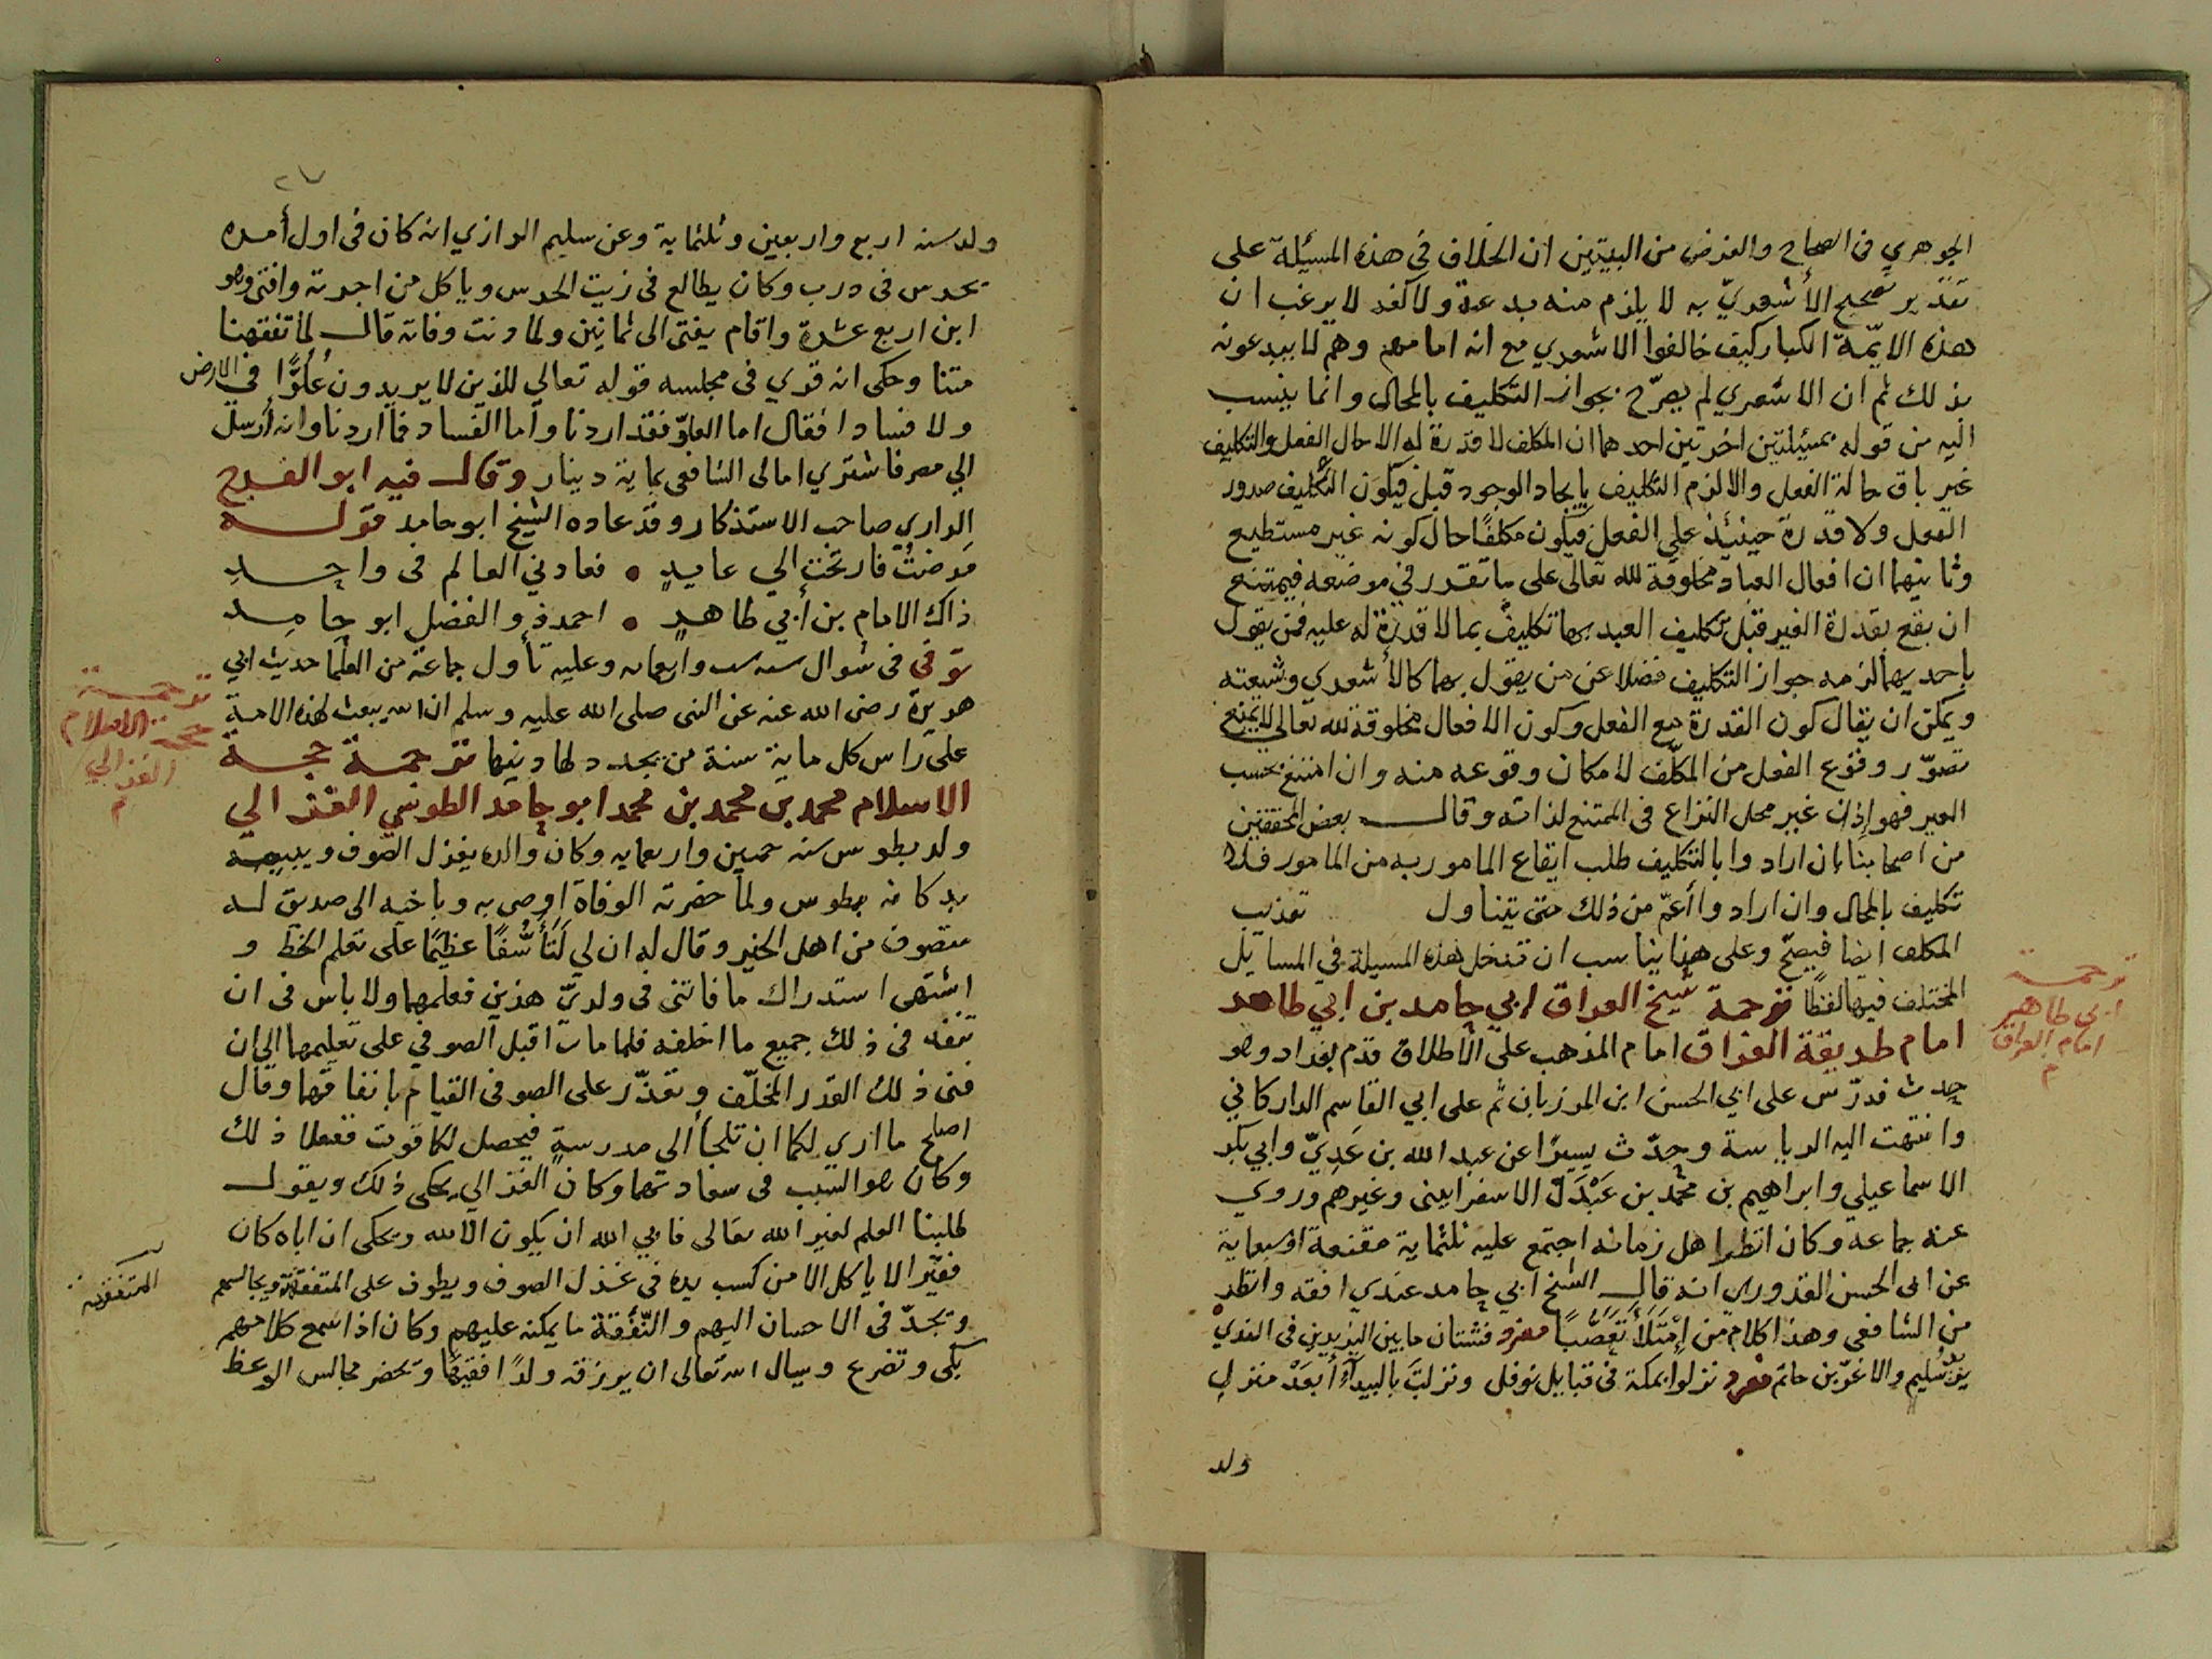 الجوهري في الصحاح والغرض من البيتين ان الخلاف في هذه المسئلة على
تقدير تصحيح الأشعريّ به لا يلزم منه بدعة ولا كفر لا يرغب ان
هذه الايمّة الكبار كيف خالفوا الاشعري مع انه امامهم وهم لا يبدعونه
بذلك ثم ان الاشعري لم يصرّح بجواز التكليف بالمحال وانما ينسب
اليه من قوله بمسئلتين اخرتين احدهما ان المكلف لا قدرة له الا حال الفعل والتكليف
غير باق حالة الفعل والا لزم التكليف بايجاد الوجود قبل فيكون التكليف صدور
الفعل ولا قدرة حينئذ على الفعل فيكون مكلفًا حال كونه غير مستطيع
وثانيهما ان افعال العباد مخلوقة لله تعالى على ما تقرر في موضعه فيمتنع
ان يقع بقدرة الغير قبل تكليف العبد بها تكليفٌ بما لا قدرة له عليه فمن يقول
باحديهما لزمه جواز التكليف فضلا عن من يقول بهما كالأشعري وشيعته
ويمكن ان يقال كون القدرة مع الفعل وكون الافعال مخلوقة لله تعالى لا يمنع
تصوّر وقوع الفعل من المكلّف لامكان وقوعه منه وان امتنع بحسب
الغير فهو إذن غير محل النزاع في الممتنع لذاته وقال بعض المحققين
من اصحابنا بان ارادوا بالتكليف طلب ايقاع المامور به من المامور فلا
تكليف بالمحال وان ارادوا أعمّ من ذلك حتى يتناول تعذيب
المكلف ايضا فيصحّ وعلى هذا يناسب ان تدخل هذه المسيلة في المسايل
المختلف فيها لفظًا ترجمة شيخ العراق ابي حامد بن ابي طاهر
امام طريقة العراق امام المذهب على الأطلاق قدم بغداد وهو
حدث فدرّس على ابي الحسن ابن المرزبان ثم على ابي القاسم الداركاني
وانتهت اليه الرياسة وحدّث يسيرًا عن عبد الله بن عَدِيّ وابي بكر
الاسماعيلي وابراهيم بن محمد بن عَبْدَك الاسفرايينى وغيرهم وروي
عنه جماعة وكان انظر اهل زمانه اجتمع عليه ثلثماية مقنعة اوسبعماية
عن ابى الحسن القدوري انه قال الشيخ ابي حامد عندي افقه وانظر
من الشافعى وهذا كلام من إمْتَلَأَ تَعَصُّبًا مفرد فشتان ما بين اليزيدين في الندي
يزيد سُليم والاغرّ بن حاتم مفرد نزلوا بمكة في قبايل نوفل ونزلتَ بالبيدآءِ أبعدَ منزلِ
ولد
ترجمة
ابى طاهر
امام العراق
م
٢٧
ولد سنه اربع واربعين وثلثماية وعن سليم الرازي انه كان في اول أمره
يحرس في درب وكان يطالع فى زيت الحرس وياكل من اجرته وافتى وهو
ابن اربع عشرة واقام يفتى الى ثمانين ولما دنت وفاته قال لما تفقهنا
متنا وحكى انه قري في مجلسه قوله تعالي للذين لا يريدون عُلُوًّا في الارض
ولا فسادا فقال اما العلوّ فقد اردنا وأما الفساد فما اردنا وانه أرسل
الي مصر فاشتري امالى الشافعى بماية دينار وقال فيه ابو الفرج
الداري صاحب الاستذكار وقد عاده الشيخ ابو حامد قوله
مرضتُ فارتحتُ الي عايدٍ • فعادني العالم فى واحِدِ
ذاك الامام بن أبي طاهرٍ • احمد ذو الفضل ابو حامِدِ
توفي فى شوال سنه ست واربعمايه وعليه تأول جماعة من العلما حديث ابي
هريرة رضى الله عنه عن النبى صلى الله عليه وسلم ان الله يبعث لهذه الامة
على راس كل ماية سنة من يجدد لها دينها ترجمة حجة
الاسلام محمد بن محمد بن محمد ابو حامد الطوسي الغزالي
ولد بطوس سنه خمسين واربعمايه وكان والده يغزل الصّوف ويبيعه
بدكانه بطوس ولما حضرته الوفاة اوصى به وباخيه الى صديق له
متصوف من اهل الخير وقال له ان لي لَتَأَسُّفًا عظيمًا على تعلم الخط و
اشتهى استدراك ما فاتنى فى ولديّ هذين فعلمهما ولا باس فى ان
تنفد فى ذلك جميع ما اخلفه فلما مات اقبل الصوفي على تعليمهما الى ان
فنى ذلك القدر المخلّف وتعذّر على الصوفى القيام بانفاقهما وقال
اصلح ما اري لكما ان تلجأ الى مدرسةٍ فيحصل لكما قوت ففعلا ذلك
وكان هو السبب فى سعادتهما وكان الغزالي يحكى ذلك ويقول
طلبنا العلم لغير الله تعالى فابي الله ان يكون الا لله ويحكى ان اباه كان
فقيرا لا ياكل الا من كسب يده فى غزل الصوف ويطوف على المتفقهة ويجالسهم
ويجدّ فى الاحسان اليهم والنّفقة ما يمكنه عليهم وكان اذا سمع كلامهم
بكى وتضرع وسال الله تعالى ان يرزقه ولدًا فقيهًا ويحضر مجالس الوعظ
ترجمة
حجة الاسلام
الغزالي
م
المتفقهة